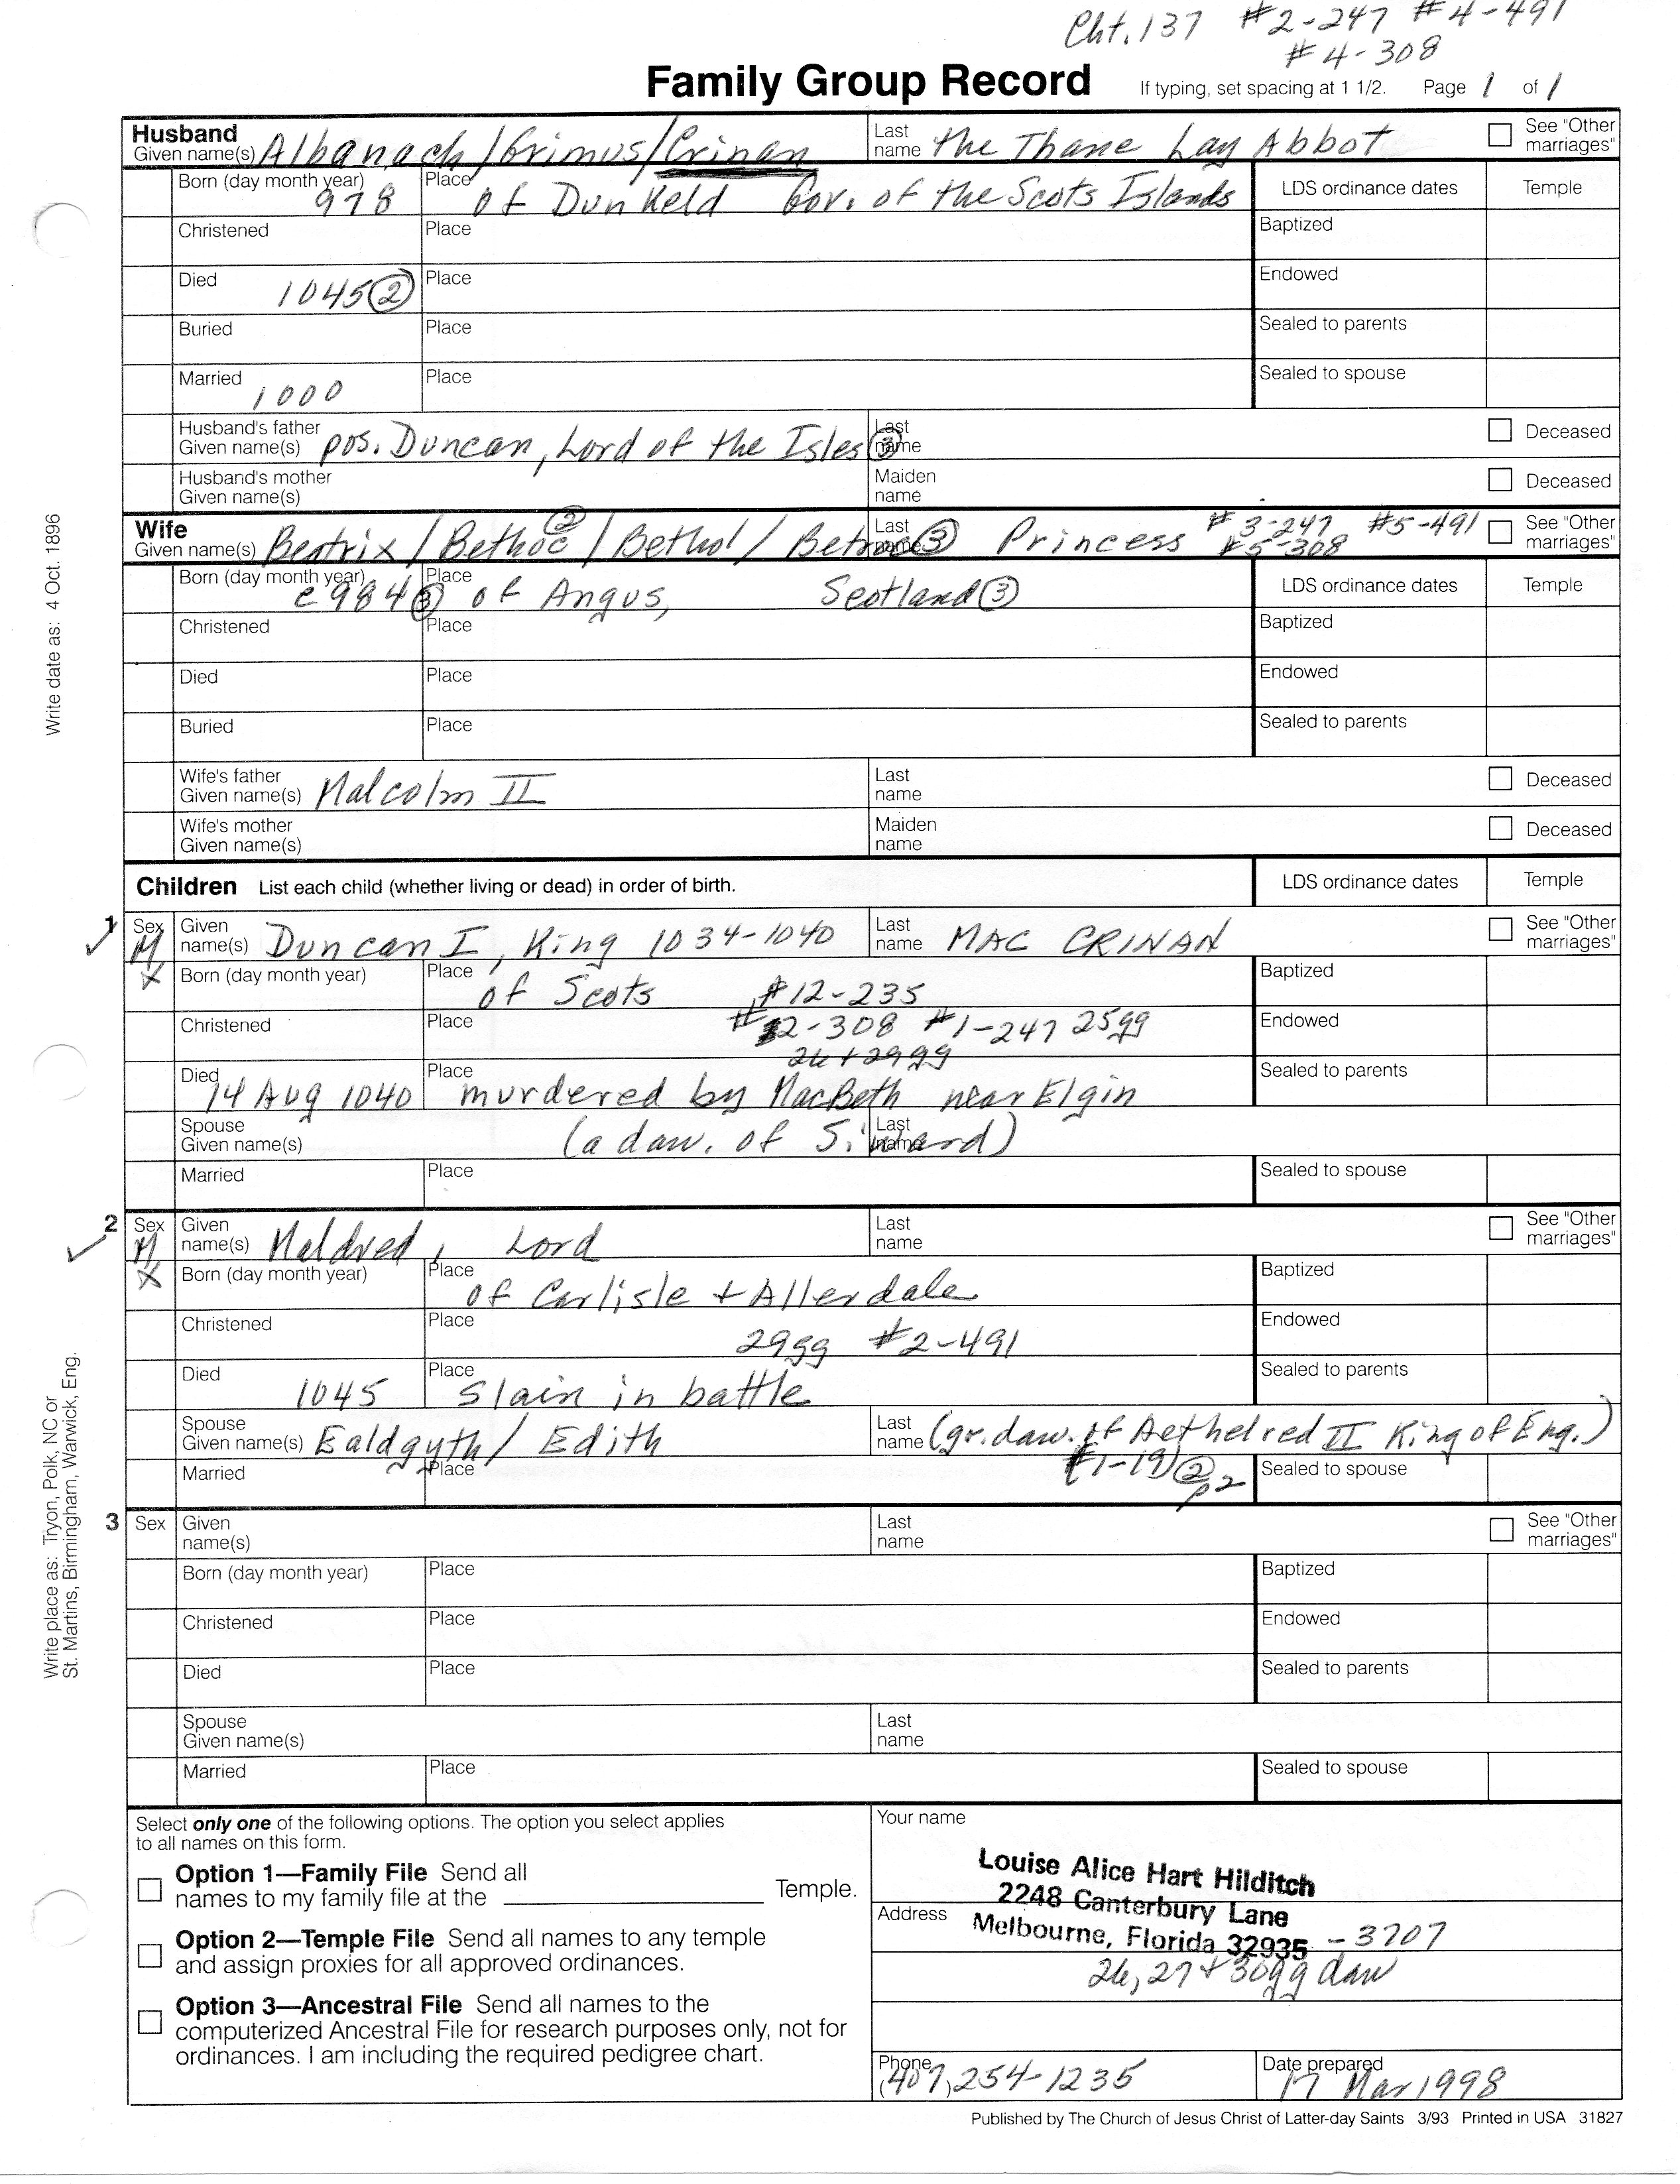 Cht. 137 #2-247 #4-491
#4-308
Family Group Record If typing, set spacing at 1 1/2. Page 1 of 1
Husband
Given name(s) Albanach/Grimus/Crinan Last name the Thane Lay Abbot See "Other marriages"
Born (day month year) 978 Place of Dunkeld Gov. of the Scots Islands LDS ordinance dates Temple
Christened Place Baptized
Died 1045 ② Place Endowed
Buried Place Sealed to parents
Married 1000 Place Sealed to spouse
Husband's father Given name(s) pos. Duncan, Lord of the Isles ③ Last name Deceased
Husband's mother Given name(s) Maiden name Deceased
Wife
Given name(s) Beatrix/Bethoc ②/Bethol/ ③ Last name Princess #3-247 #5-491 See "Other marriages"
#5-308
Born (day month year) c984 ③ Place of Angus, Scotland ③ LDS ordinance dates Temple
Christened Place Baptized
Died Place Endowed
Buried Place Sealed to parents
Wife's father Given name(s) Malcolm II Last name Deceased
Wife's mother Given name(s) Maiden name Deceased
Children List each child (whether living or dead) in order of birth. LDS ordinance dates Temple
1 Sex M Given name(s) Duncan I, King 1034-1040 Last name MAC CRINAN See "Other marriages"
X Born (day month year) Place of Scots #12-235 Baptized
Christened Place #2-308 #1-247 25gg Endowed
26+29gg
Died 14 Aug 1040 Place murdered by MacBeth near Elgin Sealed to parents
Spouse Given name(s) (a daw. of Siward) Last name
Married Place Sealed to spouse
2 Sex M Given name(s) Maldred, Lord Last name See "Other marriages"
X Born (day month year) Place of Carlisle + Allerdale Baptized
Christened Place 29gg #2-491 Endowed
Died 1045 Place Slain in battle Sealed to parents
Spouse Given name(s) Ealdgyth/Edith Last name (gr. daw. of Aethelred II King of Eng.)
Married Place #1-19) ② p2 Sealed to spouse
3 Sex Given name(s) Last name See "Other marriages"
Born (day month year) Place Baptized
Christened Place Endowed
Died Place Sealed to parents
Spouse Given name(s) Last name
Married Place Sealed to spouse
Select only one of the following options. The option you select applies
to all names on this form.
Option 1—Family File Send all
names to my family file at the Temple.
Option 2—Temple File Send all names to any temple
and assign proxies for all approved ordinances.
Option 3—Ancestral File Send all names to the
computerized Ancestral File for research purposes only, not for
ordinances. I am including the required pedigree chart.
Your name
Louise Alice Hart Hilditch
2248 Canterbury Lane
Address Melbourne, Florida 32935 -3707
26, 27 + 30gg daw
Phone (407) 254-1235 Date prepared 17 Mar 1998
Published by The Church of Jesus Christ of Latter-day Saints 3/93 Printed in USA 31827
Write date as: 4 Oct. 1896
Write place as: Tryon, Polk, NC or
St. Martins, Birmingham, Warwick, Eng.